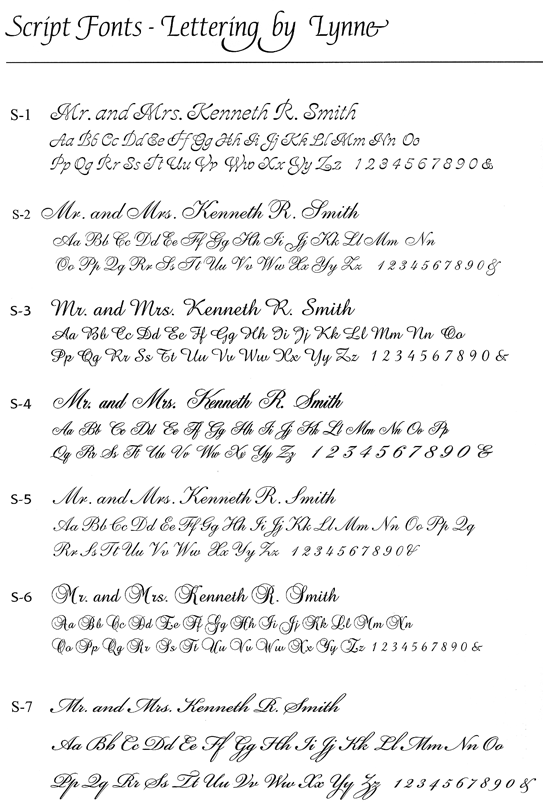 Script Fonts - Lettering by Lynne
S-1 Mr. and Mrs. Kenneth R. Smith
Aa Bb Cc Dd Ee Ff Gg Hh Ii Jj Kk Ll Mm Nn Oo
Pp Qq Rr Ss Tt Uu Vv Ww Xx Yy Zz 1234567890&
S-2 Mr. and Mrs. Kenneth R. Smith
Aa Bb Cc Dd Ee Ff Gg Hh Ii Jj Kk Ll Mm Nn
Oo Pp Qq Rr Ss Tt Uu Vv Ww Xx Yy Zz 1234567890&
S-3 Mr. and Mrs. Kenneth R. Smith
Aa Bb Cc Dd Ee Ff Gg Hh Ii Jj Kk Ll Mm Nn Oo
Pp Qq Rr Ss Tt Uu Vv Ww Xx Yy Zz 1234567890 &
S-4 Mr. and Mrs. Kenneth R. Smith
Aa Bb Cc Dd Ee Ff Gg Hh Ii Jj Kk Ll Mm Nn Oo Pp
Qq Rr Ss Tt Uu Vv Ww Xx Yy Zz 1234567890 &
S-5 Mr. and Mrs. Kenneth R. Smith
Aa Bb Cc Dd Ee Ff Gg Hh Ii Jj Kk Ll Mm Nn Oo Pp Qq
Rr Ss Tt Uu Vv Ww Xx Yy Zz 1234567890&
S-6 Mr. and Mrs. Kenneth R. Smith
Aa Bb Cc Dd Ee Ff Gg Hh Ii Jj Kk Ll Mm Nn
Oo Pp Qq Rr Ss Tt Uu Vv Ww Xx Yy Zz 1234567890&
S-7 Mr. and Mrs. Kenneth R. Smith
Aa Bb Cc Dd Ee Ff Gg Hh Ii Jj Kk Ll Mm Nn Oo
Pp Qq Rr Ss Tt Uu Vv Ww Xx Yy Zz 1234567890&